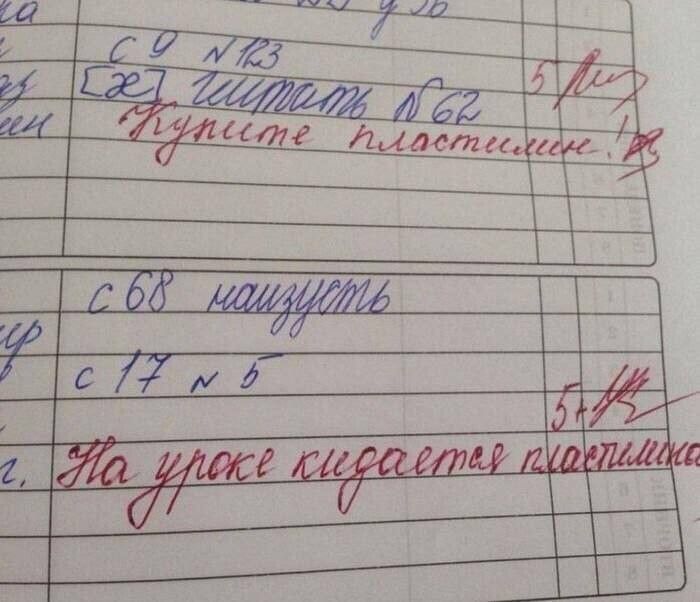 с 9 N123
[х] читать N62
5
Купите пластилин!
с 68 наизусть
с 17 N 5
5+
На уроке кидается пластилино